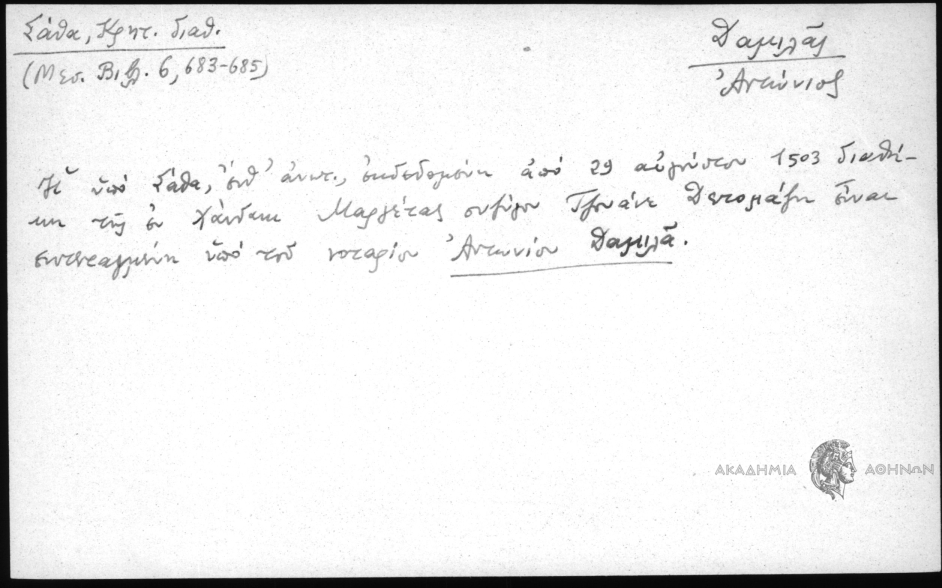 Σάθα, Κρητ. διαθ.
(Μεσ. Βιβλ. 6, 683-685)
Δαμιλᾶς
Ἀντώνιος
Ἡ ὑπό Σάθα, ἔνθ' ἀνωτ., ἐκδεδομένη ἀπό 29 αὐγούστου 1503 διαθή-
κη τῆς ἐν Χάνδακι Μαργέτας συζύγου Τζουάνε Δετομάζη εἶναι
συντεταγμένη ὑπό τοῦ νοταρίου Ἀντωνίου Δαμιλᾶ.
ΑΚΑΔΗΜΙΑ ΑΘΗΝΩΝ